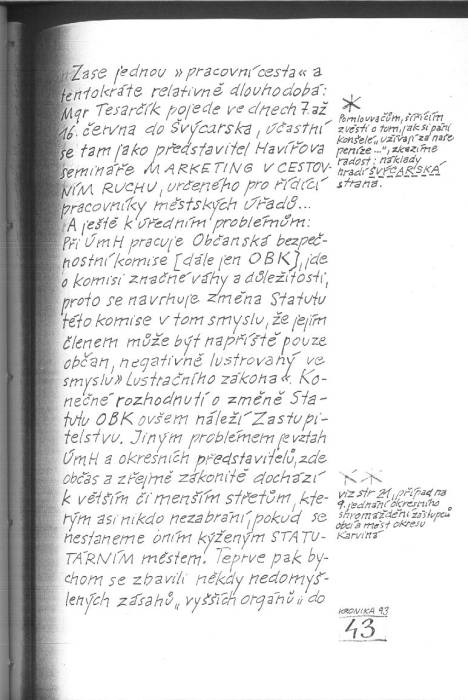 Zase jednou » pracovní cesta « a
tentokráte relativně dlouhodobá:
Mgr Tesarčík pojede ve dnech 7. až
16. června do Švýcarska, účastní
se tam jako představitel Havířova
semináře MARKETING V CESTOV-
NÍM RUCHU, určeného pro řídící
pracovníky městských úřadů...
A ještě k úředním problémům:
Při ÚmH pracuje Občanská bezpeč-
nostní komise [dále jen OBK], jde
o komisi značné váhy a důležitosti,
proto se navrhuje změna Statutu
této komise v tom smyslu, že jejím
členem může být napříště pouze
občan, negativně lustrovaný ve
smyslu » Lustračního zákona «. Ko-
nečné rozhodnutí o změně Sta-
tutu OBK ovšem náleží Zastupi-
telstvu. Jiným problémem je vztah
ÚmH a okresních představitelů, zde
občas a zřejmě zákonitě dochází
k větším či menším střetům, kte-
rým asi nikdo nezabrání, pokud se
nestaneme oním kýženým STATU-
TÁRNÍM městem. Teprve pak by-
chom se zbavili někdy nedomyš-
lených zásahů „ vyšších orgánů " do
*
Pomlouvačům, šířícím
zvěsti o tom, jak si páni
konšelé „ užívají za naše
peníze...", zkazíme
radost: náklady
hradí ŠVÝCARSKÁ
strana.
**
viz str 21, případ na
9. jednání okresního
shromáždění zástupců
obcí a měst okresu
Karviná
KRONIKA 93
43